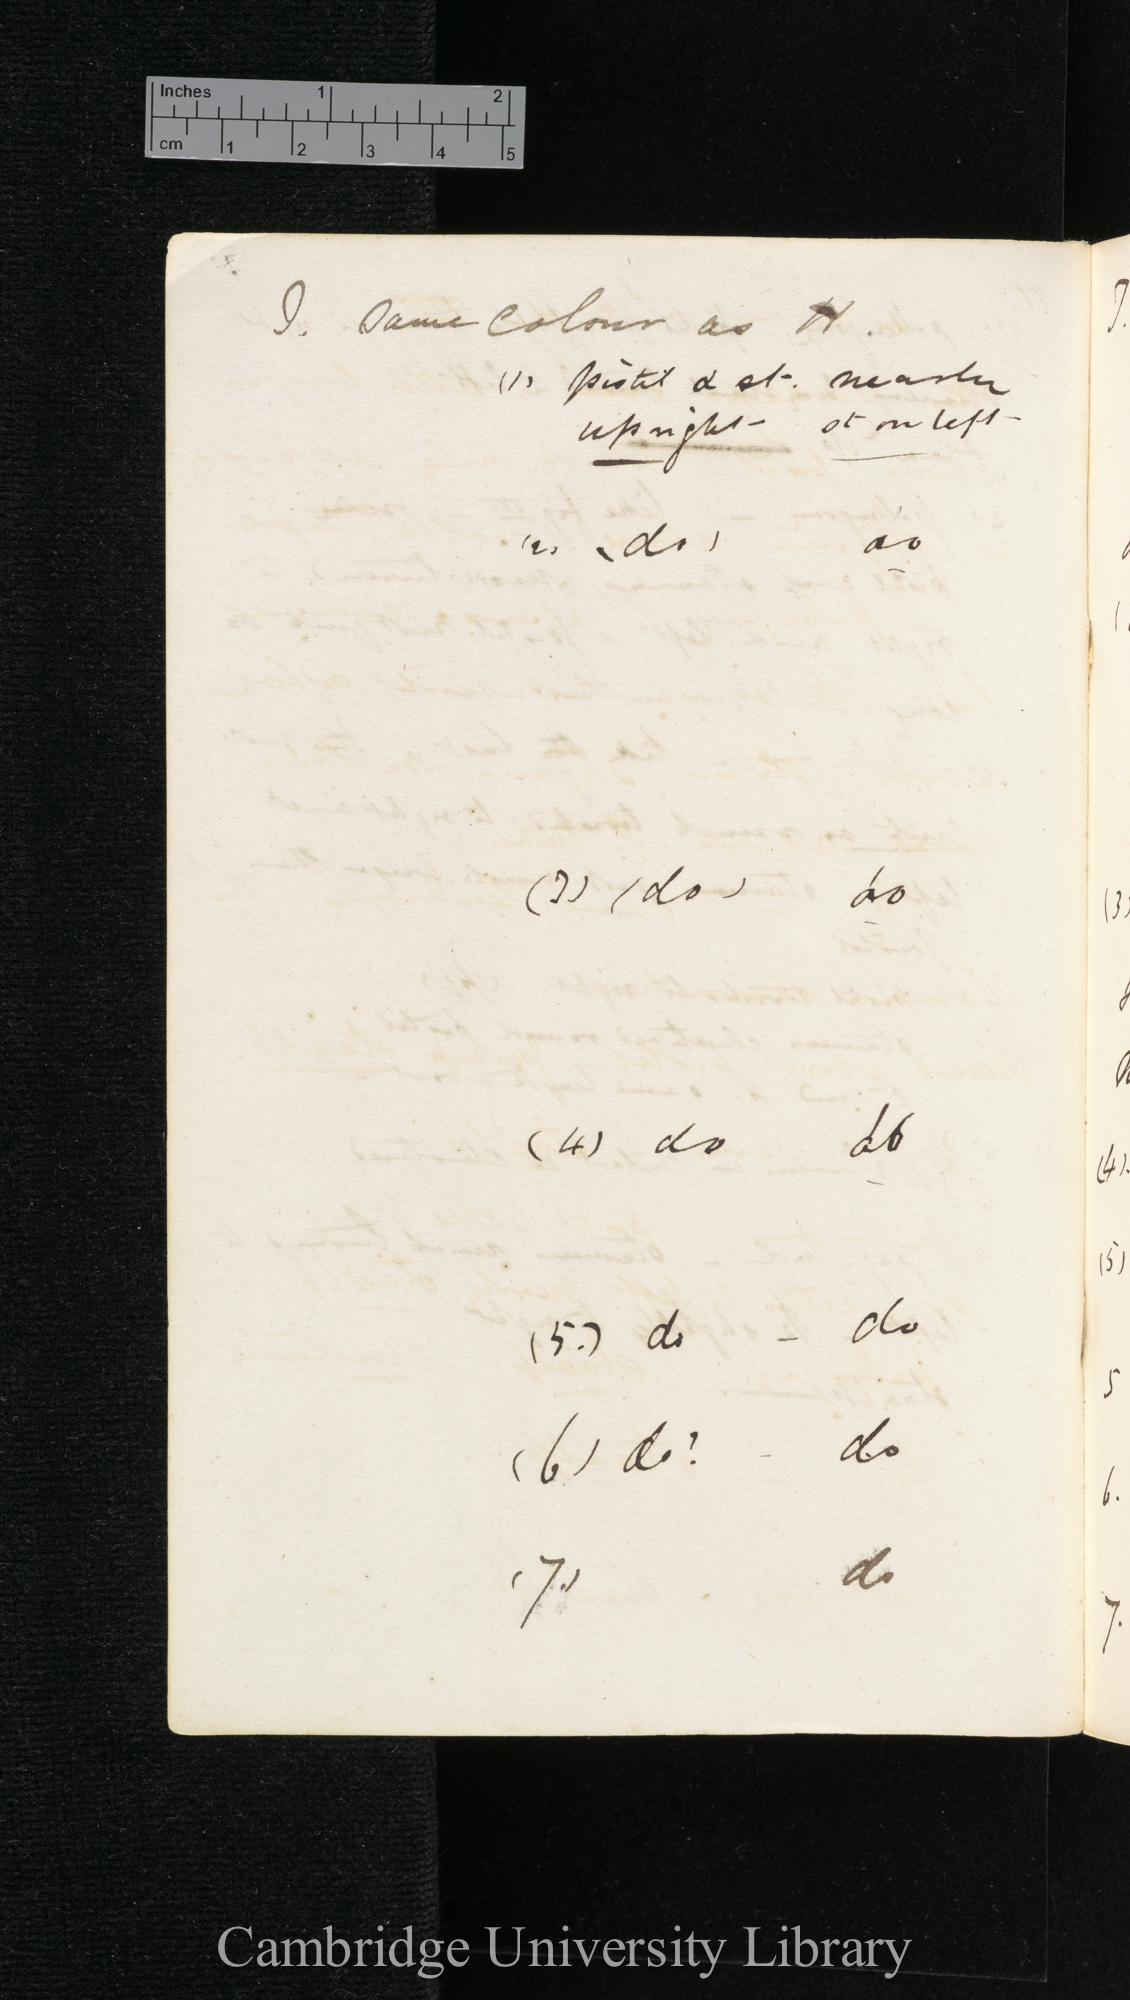 Inches 1 2
cm 1 2 3 4 5
I. Same colour as H.
(1) pistil & st. nearly
upright - st on left -
(2) (do) do
(3) (do) do
(4) do do
(5.) do - do
(6) do? - do
(7.) do
(3)
(4).
(5)
5
6.
7.
Cambridge University Library